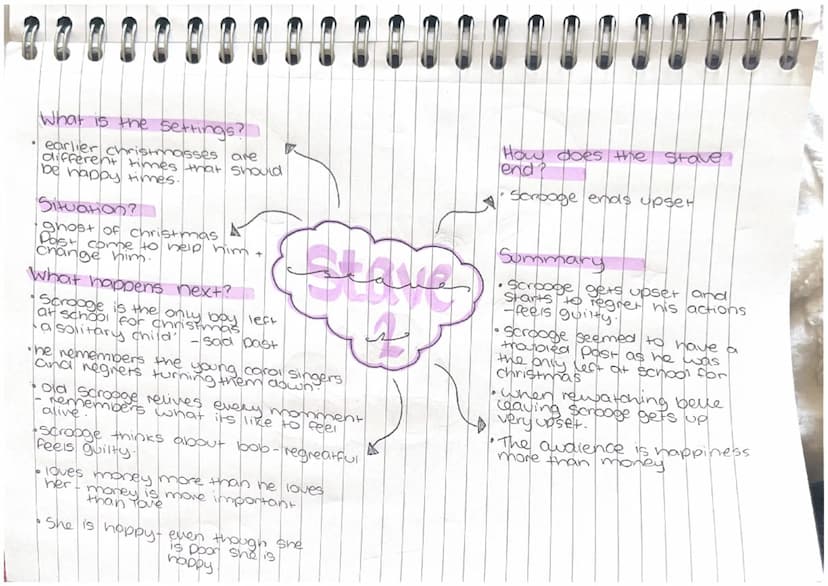 What is the settings?
• earlier christmasses are
different times that should
be happy times.
Situation?
• ghost of christmas
Past come to help him +
change him.
What happens next?
• Scrooge is the only boy left
at school for christmas
'a solitary child' - sad past
• he remembers the young carol singers
and regrets turning them down.
• old scrooge relives every momment
- remembers what its like to feel
alive.
• scrooge thinks about bob - regreatful
feels guilty.
• loves money more than he loves
her - money is more important
than love
• She is happy - even though she
is poor she is
happy
Stave
2
stave
2
How does the stave
end?
• scrooge ends upset
Summary
• scrooge gets upset and
starts to regret his actions
- feels guilty.
• scrooge seemed to have a
troubled past as he was
the only left at school for
christmas
• when rewatching belle
leaving scrooge gets up
very upset.
• The audience is happiness
more than money